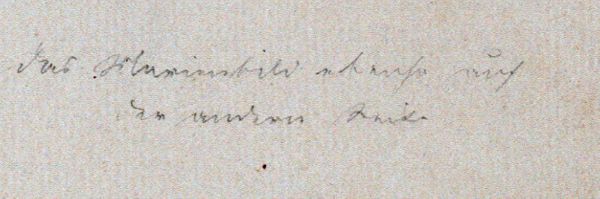 das Marienbild ebenso auf
der andern Seite